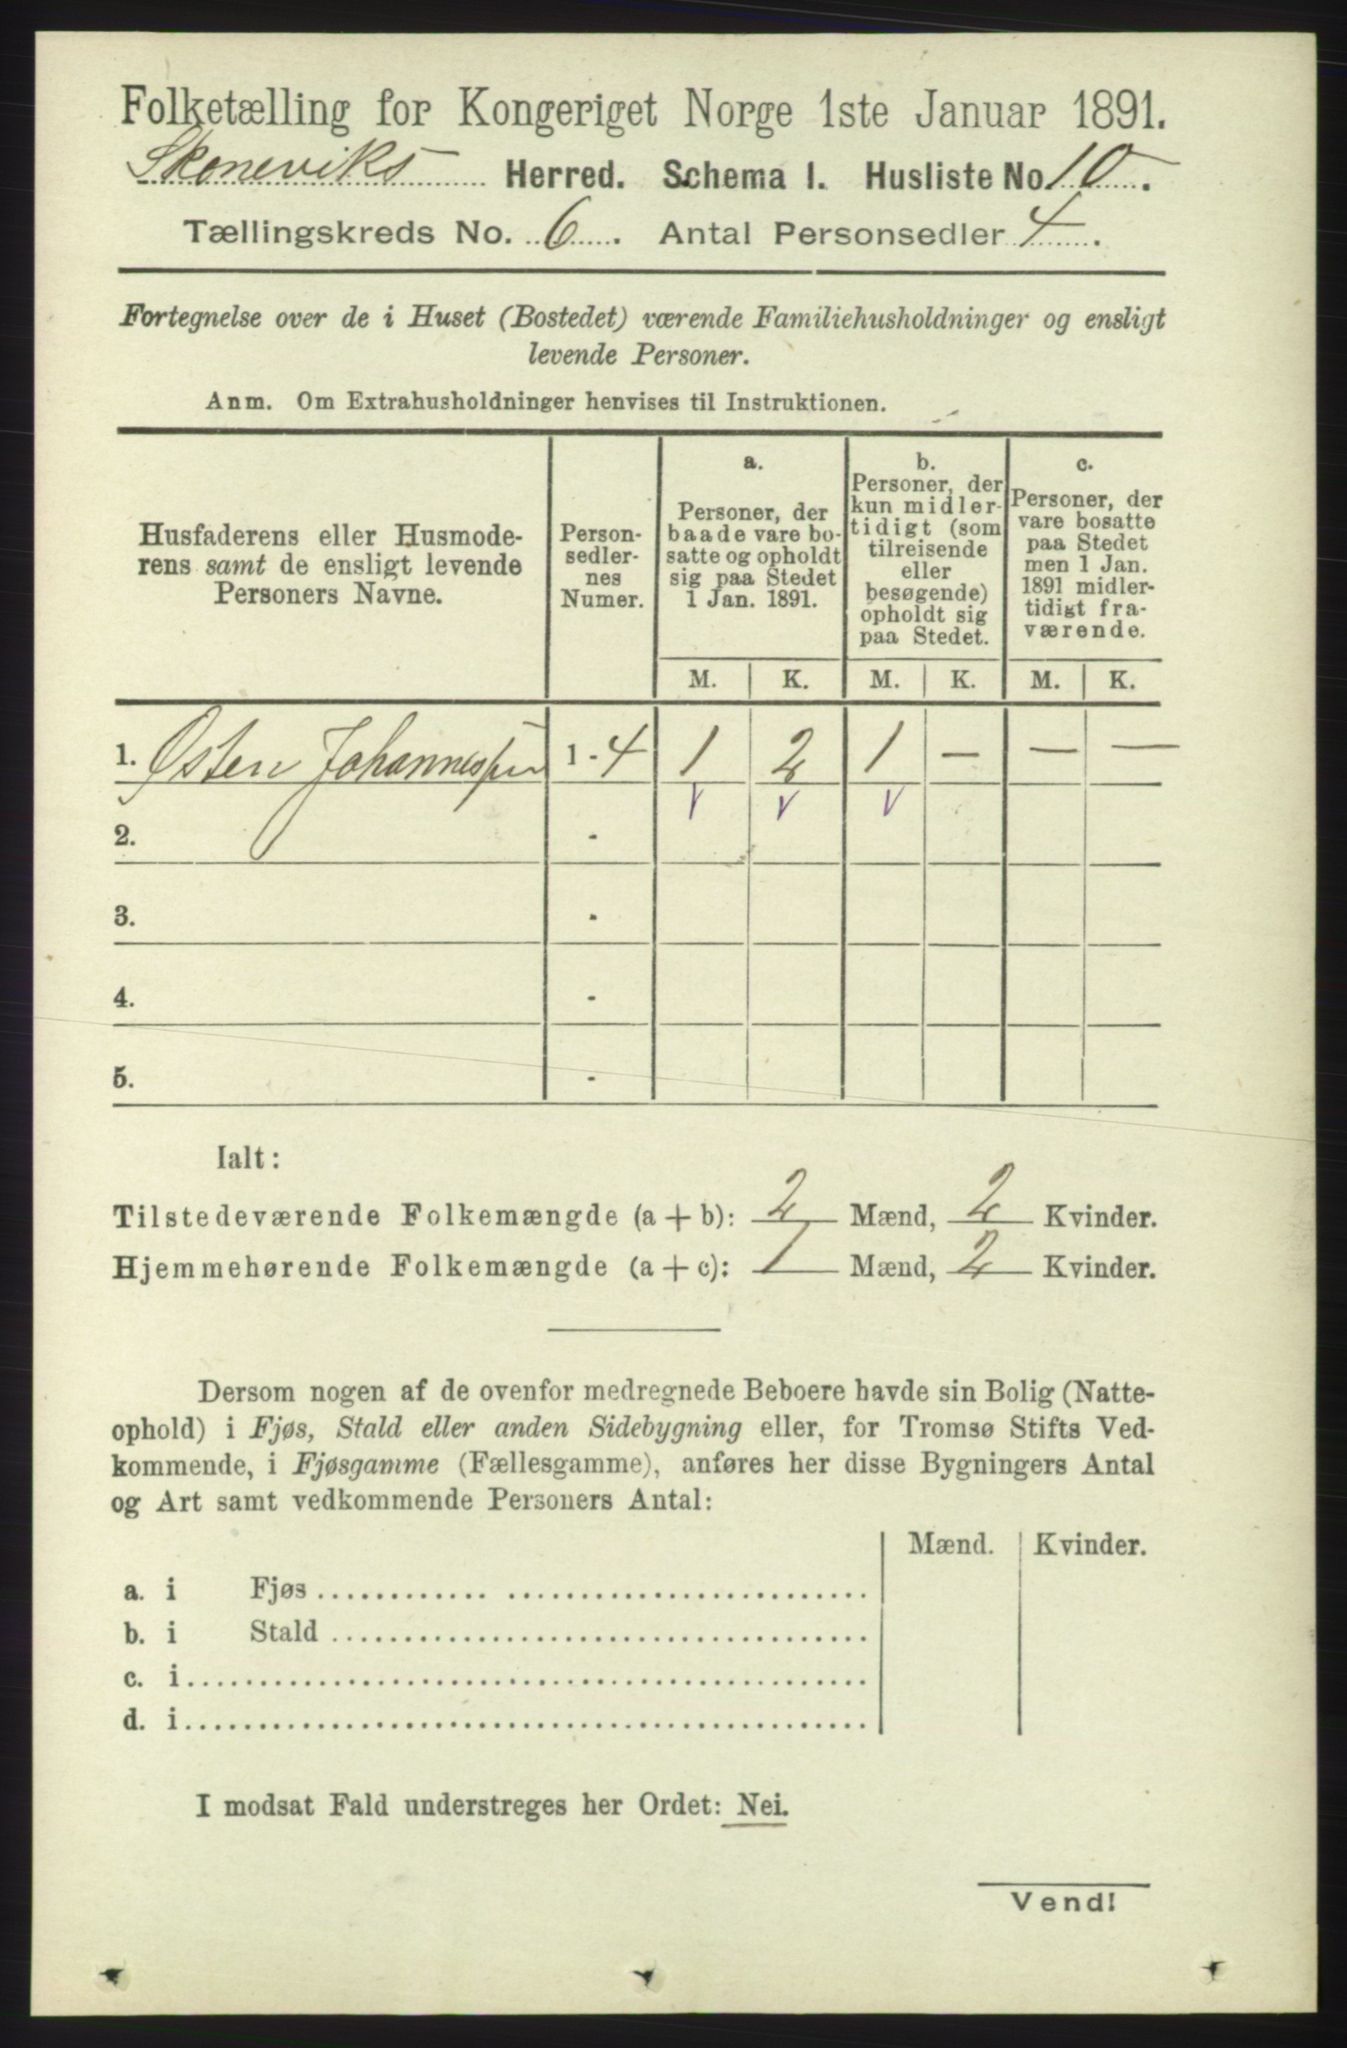 Folketælling for Kongeriget Norge 1ste Januar 1891.
Skoneviks Herred. Schema I. Husliste No 10.
Tællingskreds No. 6. Antal Personsedler 4.
Fortegnelse over de i Huset (Bostedet) værende Familiehusholdninger og ensligt
levende Personer.
Anm. Om Extrahusholdninger henvises til Instruktionen.
Husfaderens eller Husmode-
rens samt de ensligt levende
Personers Navne.
Person-
sedler-
nes
Numer.
a.
Personer, der
baade vare bo-
satte og opholdt
sig paa Stedet
1 Jan. 1891.
b.
Personer, der
kun midler-
tidigt (som
tilreisende
eller
besøgende)
opholdt sig
paa Stedet.
c.
Personer, der
vare bosatte
paa Stedet
men 1 Jan.
1891 midler-
tidigt fra-
værende.
M. K. M. K. M. K.
1. Østen Johannessen 1 - 4 1 2 1 — — —
v v v
2. -
3. -
4. -
5. -
Ialt:
Tilstedeværende Folkemængde (a + b): 2 Mænd, 2 Kvinder.
Hjemmehørende Folkemængde (a + c): 1 Mænd, 2 Kvinder.
Dersom nogen af de ovenfor medregnede Beboere havde sin Bolig (Natte-
ophold) i Fjøs, Stald eller anden Sidebygning eller, for Tromsø Stifts Ved-
kommende, i Fjøsgamme (Fællesgamme), anføres her disse Bygningers Antal
og Art samt vedkommende Personers Antal:
Mænd. Kvinder.
a. i Fjøs
b. i Stald
c. i
d. i
I modsat Fald understreges her Ordet: Nei.
Vend!